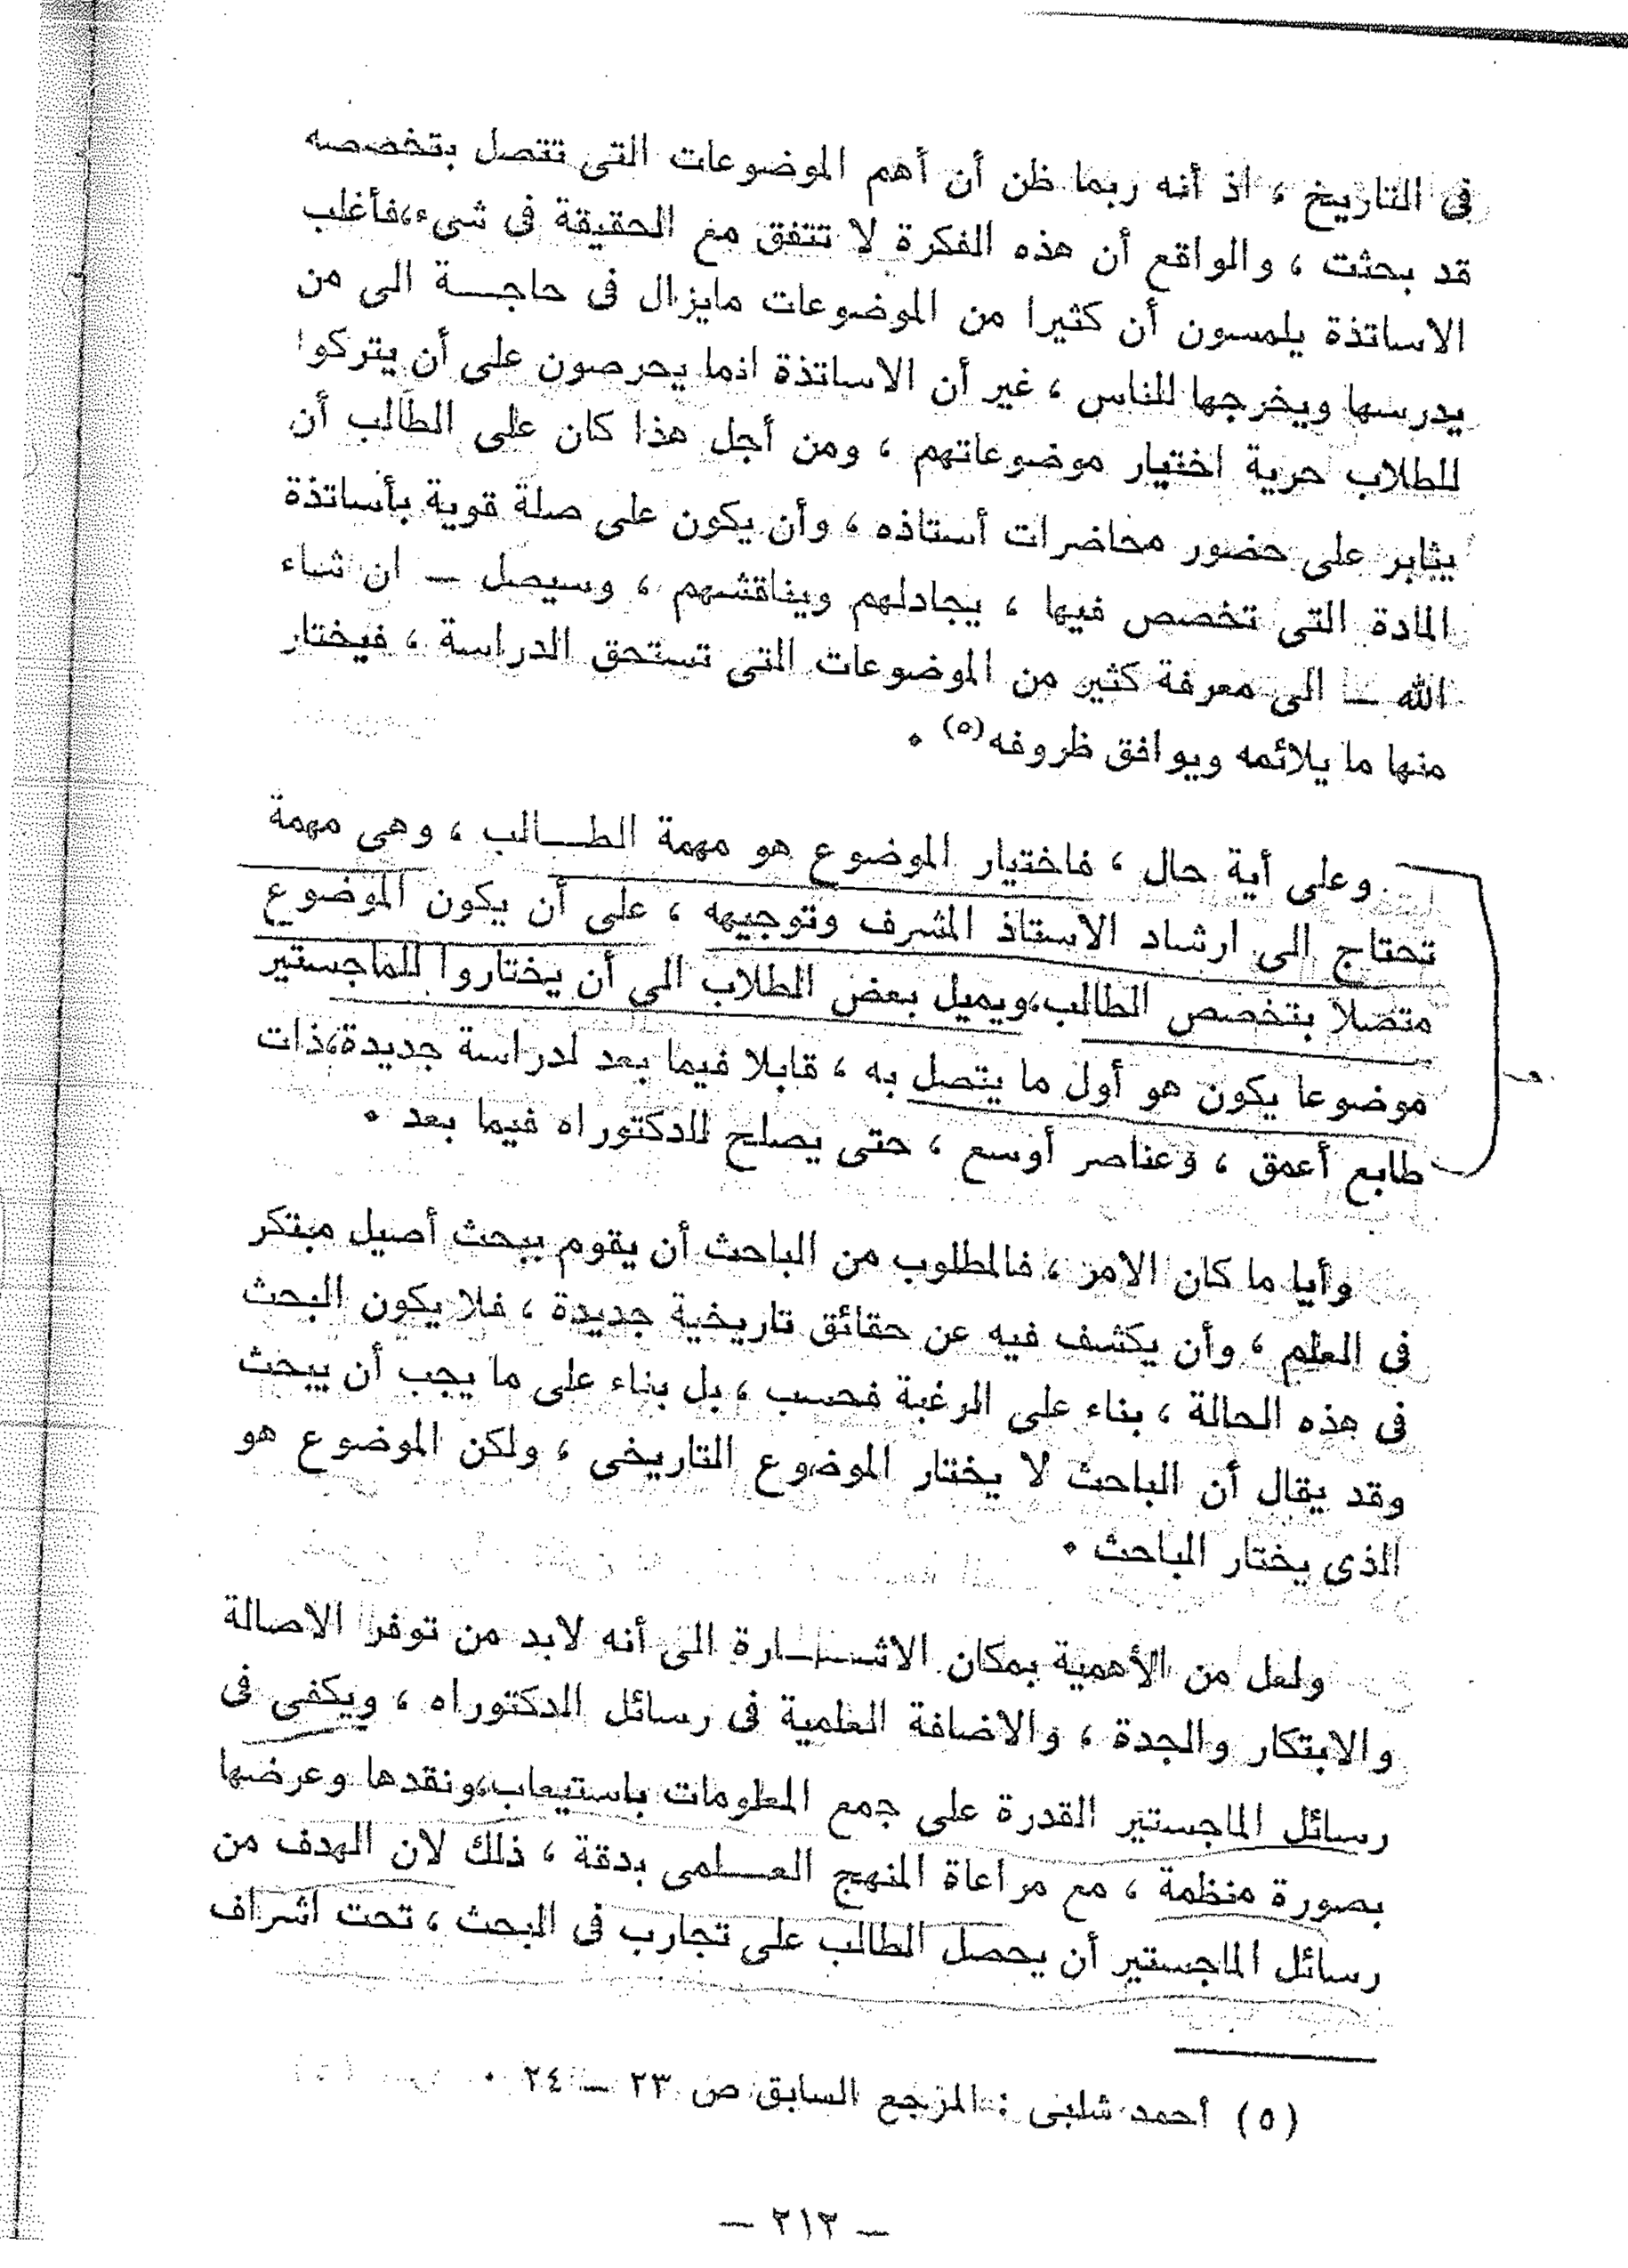 فى التاريخ ، اذ أنه ربما ظن أن أهم الموضوعات التى تتصل بتخصصه
قد بحثت ، والواقع أن هذه الفكرة لا تتفق مع الحقيقة فى شىء،فأغلب
الاساتذة يلمسون أن كثيرا من الموضوعات مايزال فى حاجـــة الى من
يدرسها ويخرجها للناس ، غير أن الاساتذة انما يحرصون على أن يتركوا
للطلاب حرية اختيار موضوعاتهم ، ومن أجل هذا كان على الطالب أن
يثابر على حضور محاضرات أستاذه ، وأن يكون على صلة قوية بأساتذة
المادة التى تخصص فيها ، يجادلهم ويناقشهم ، وسيصل — ان شاء
الله — الى معرفة كثير من الموضوعات التى تستحق الدراسة ، فيختار
منها ما يلائمه ويوافق ظروفه(٥) .
وعلى أية حال ، فاختيار الموضوع هو مهمة الطـــالب ، وهى مهمة
تحتاج الى ارشاد الاستاذ المشرف وتوجيهه ، على أن يكون الموضوع
متصلا بتخصص الطالب،ويميل بعض الطلاب الى أن يختاروا للماجستير
موضوعا يكون هو أول ما يتصل به ، قابلا فيما بعد لدراسة جديدة،ذات
طابع أعمق ، وعناصر أوسع ، حتى يصلح للدكتوراه فيما بعد .
وأيا ما كان الامر ، فالمطلوب من الباحث أن يقوم ببحث أصيل مبتكر
فى العلم ، وأن يكشف فيه عن حقائق تاريخية جديدة ، فلا يكون البحث
فى هذه الحالة ، بناء على الرغبة فحسب ، بل بناء على ما يجب أن يبحث
وقد يقال أن الباحث لا يختار الموضوع التاريخى ، ولكن الموضوع هو
الذى يختار الباحث .
ولعل من الأهمية بمكان الاشـــارة الى أنه لابد من توفر الاصالة
والابتكار والجدة ، والاضافة العلمية فى رسائل الدكتوراه ، ويكفى فى
رسائل الماجستير القدرة على جمع المعلومات باستيعاب،ونقدها وعرضها
بصورة منظمة ، مع مراعاة المنهج العـــلمى بدقة ، ذلك لان الهدف من
رسائل الماجستير أن يحصل الطالب على تجارب فى البحث ، تحت اشراف
(٥) أحمد شلبى : المرجع السابق ص ٢٣ — ٢٤ .
— ٢١٣ —